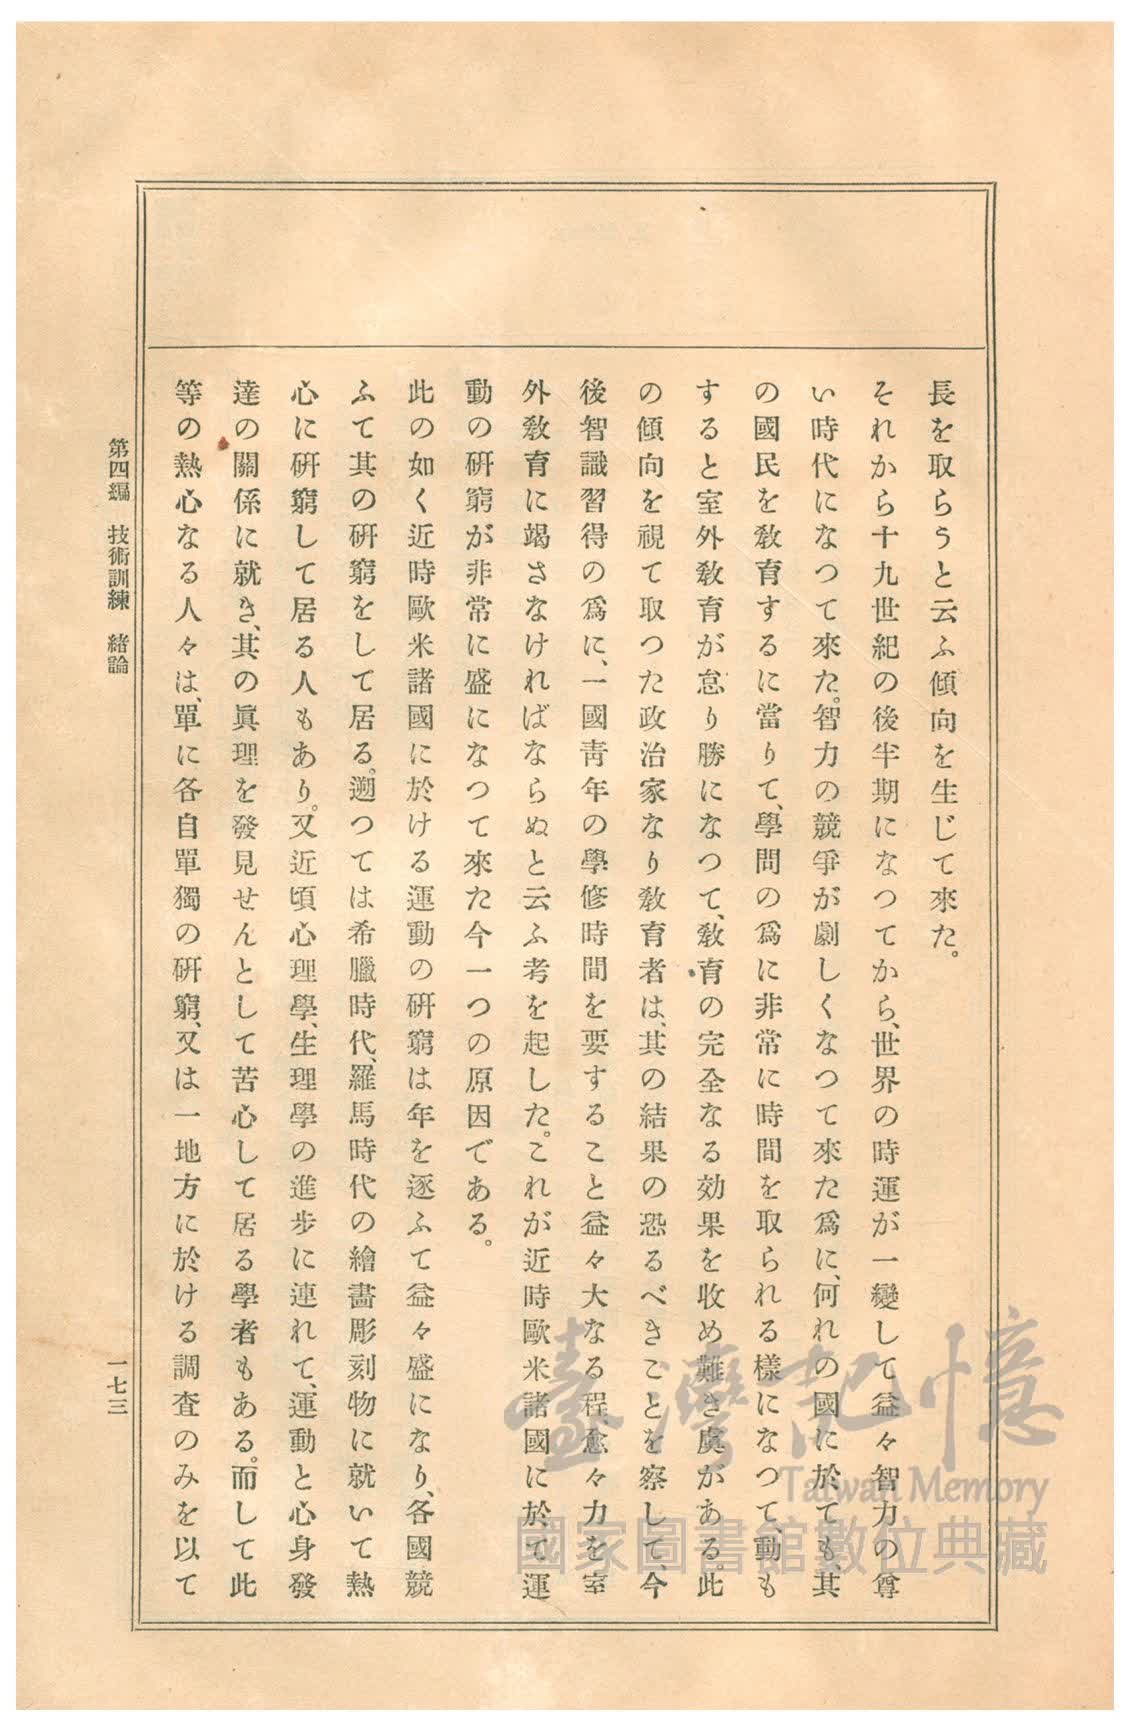 長を取らうと云ふ傾向を生じて來た。
それから十九世紀の後半期になつてから、世界の時運が一變して益々智力の尊
い時代になつて來た。智力の競爭が劇しくなつて來た爲に、何れの國に於ても、其
の國民を敎育するに當りて、學問の爲に非常に時間を取られる樣になつて、動も
すると室外敎育が怠り勝になつて、敎育の完全なる効果を收め難き虞がある。此
の傾向を視て取つた政治家なり敎育者は、其の結果の恐るべきことを察して、今
後智識習得の爲に、一國靑年の學修時間を要すること益々大なる程、愈々力を室
外敎育に竭さなければならぬと云ふ考を起した。これが近時歐米諸國に於て運
動の硏窮が非常に盛になつて來た今一つの原因である。
此の如く近時歐米諸國に於ける運動の硏窮は年を逐ふて益々盛になり、各國競
ふて其の硏窮をして居る。遡つては希臘時代、羅馬時代の繪畵彫刻物に就いて熱
心に硏窮して居る人もあり。又近頃心理學、生理學の進步に連れて、運動と心身發
達の關係に就き、其の眞理を發見せんとして苦心して居る學者もある。而して此
等の熱心なる人々は、單に各自單獨の硏窮、又は一地方に於ける調査のみを以て
第四編　技術訓練　緖論
一七三
臺灣記憶
Taiwan Memory
國家圖書館數位典藏